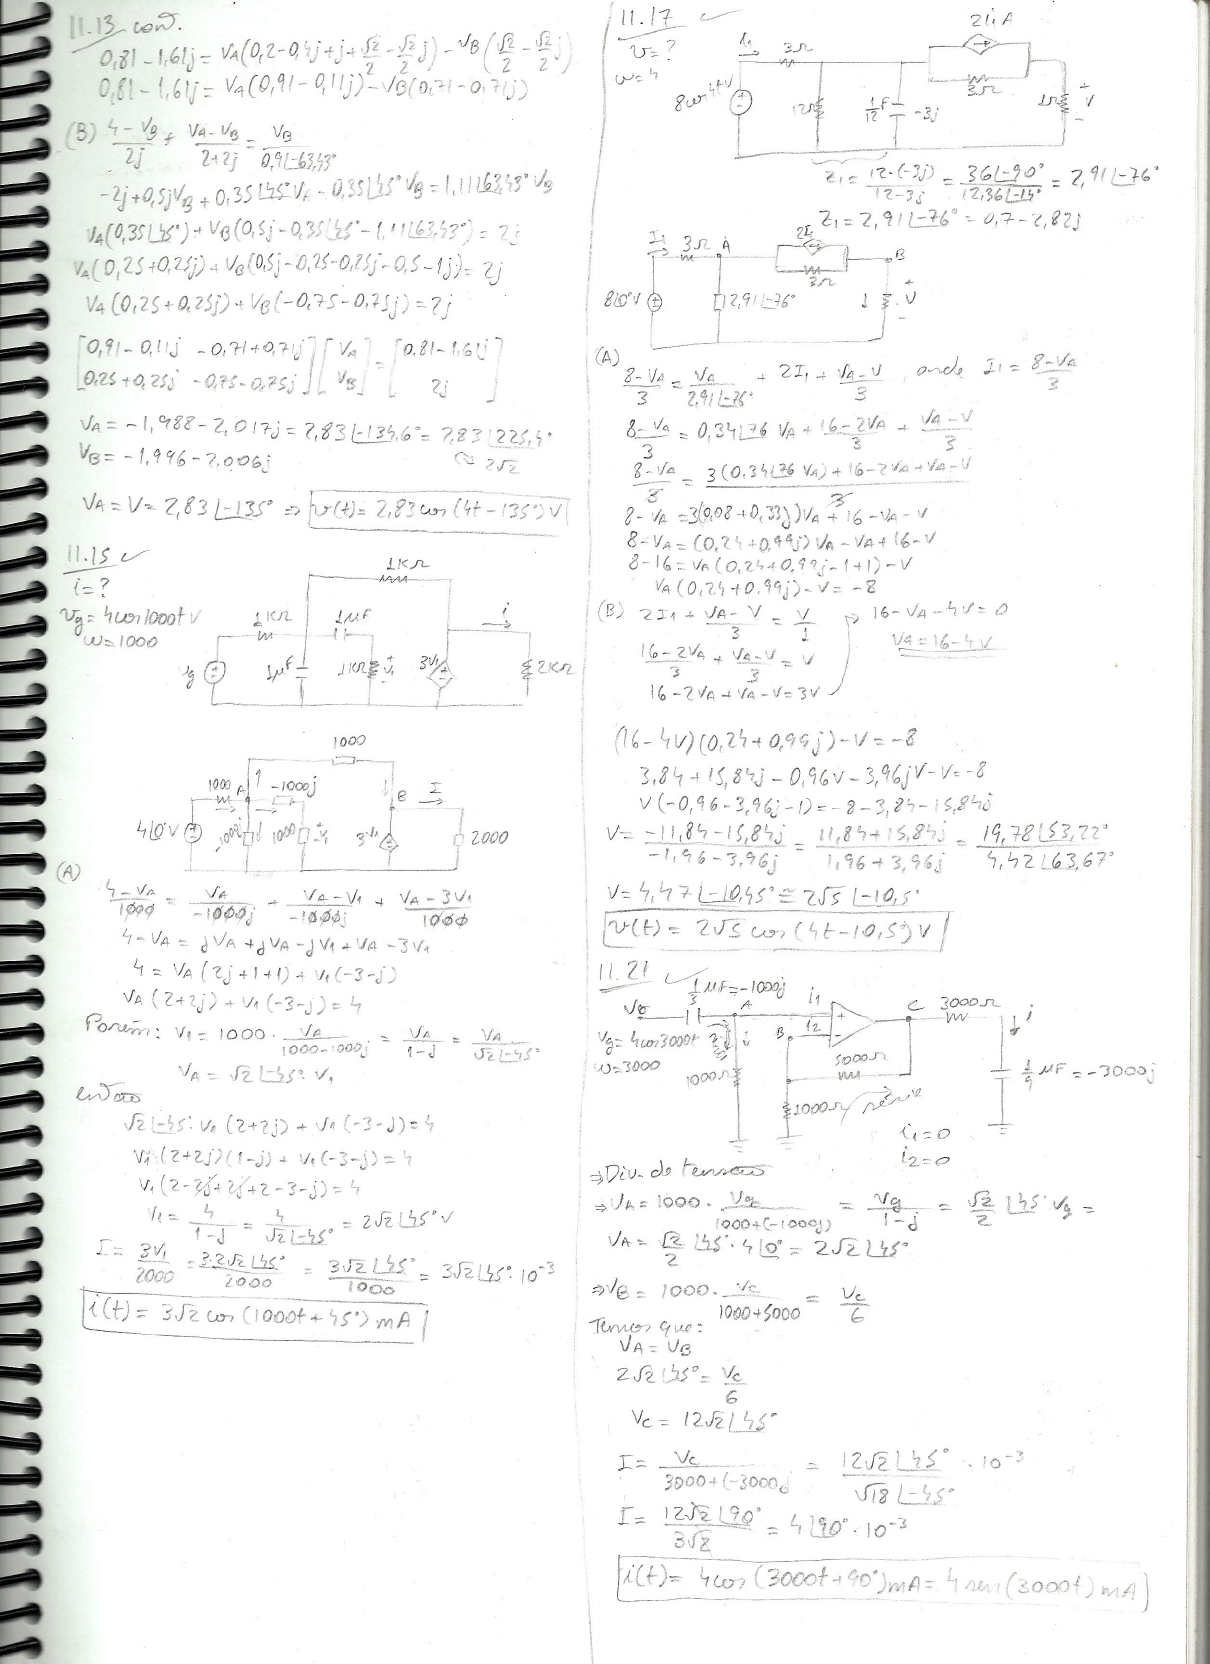 11.13 cont.
0,81-1,61j = VA(0,2-0,4j+j+√2/2-√2/2j)-VB(√2/2-√2/2j)
0,81-1,61j = VA(0,91-0,11j)-VB(0,71-0,71j)
(B) 4-Vg/2j + VA-VB/2+2j = VB/0,9∠-63,43°
-2j+0,5jVB+0,35∠45°VA-0,35∠45°VB=1,11∠63,43°VB
VA(0,35∠45°)+VB(0,5j-0,35∠45°-1,11∠63,43°)=2j
VA(0,25+0,25j)+VB(0,5j-0,25-0,25j-0,5-1j)=2j
VA(0,25+0,25j)+VB(-0,75-0,75j)=2j
[0,91-0,11j -0,71+0,71j] [VA] = [0,81-1,61j]
[0,25+0,25j -0,75-0,75j] [VB] [2j]
VA=-1,988-2,017j=2,83∠-134,6°=2,83∠225,4°
VB=-1,996-2,006j ≈ 2√2
VA=V=2,83∠-135° ⇒ v(t)=2,83cos(4t-135°)V
11.15 ✓
i=?
Vg=4cos1000t V
ω=1000
1KΩ
1KΩ 1µF i
Vg 1µF 1KΩ + V1 - 3V1 2KΩ
1000
1000 A -1000j B I
4∠0°V -1000j 1000 + V1 - 3V1 2000
(A)
4-VA/1000 = VA/-1000j + VA-V1/-1000j + VA-3V1/1000
4-VA=jVA+jVA-jV1+VA-3V1
4=VA(2j+1+1)+V1(-3-j)
VA(2+2j)+V1(-3-j)=4
Porém: V1=1000·VA/1000-1000j = VA/1-j = VA/√2∠-45°
VA=√2∠-45°·V1
então
√2∠-45°·V1(2+2j)+V1(-3-j)=4
V1·(2+2j)(1-j)+V1(-3-j)=4
V1(2-2j+2j+2-3-j)=4
V1=4/1-j=4/√2∠-45°=2√2∠45°V
I=3V1/2000=3·2√2∠45°/2000=3√2∠45°/1000=3√2∠45°·10⁻³
i(t)=3√2cos(1000t+45°)mA
11.17 ✓
v=?
ω=4
2i1A
i1 3Ω 3Ω
8cos4tV 12Ω 1/12F -3j 1Ω + V -
Z1=12·(-3j)/12-3j=36∠-90°/12,36∠-14°=2,91∠-76°
Z1=2,91∠-76°=0,7-2,82j
I1 3Ω A 2I1 B
3Ω
8∠0°V 2,91∠-76° + V -
(A)
8-VA/3 = VA/2,91∠-76° + 2I1 + VA-V/3, onde I1=8-VA/3
8-VA/3=0,34∠76VA+16-2VA/3+VA-V/3
8-VA/3=3(0,34∠76VA)+16-2VA+VA-V/3
8-VA=3(0,08+0,33j)VA+16-VA-V
8-VA=(0,24+0,99j)VA-VA+16-V
8-16=VA(0,24+0,99j-1+1)-V
VA(0,24+0,99j)-V=-8
(B) 2I1+VA-V/3=V/1 → 16-VA-4V=0
16-2VA/3+VA-V/3=V VA=16-4V
16-2VA+VA-V=3V
(16-4V)(0,24+0,99j)-V=-8
3,84+15,84j-0,96V-3,96jV-V=-8
V(-0,96-3,96j-1)=-8-3,84-15,84j
V=-11,84-15,84j/-1,96-3,96j=11,84+15,84j/1,96+3,96j=19,78∠53,22°/4,42∠63,67°
V=4,47∠-10,45°≅2√5∠-10,5°
v(t)=2√5cos(4t-10,5°)V
11.21 ✓
1/3µF=-1000j i1 C 3000Ω i
Vg A + -
Vg=4cos3000t B i2
ω=3000 1000Ω 5000Ω 1/9µF=-3000j
1000Ω série
i1=0
i2=0
⇒Div. de tensão
⇒VA=1000·Vg/1000+(-1000j)=Vg/1-j=√2/2∠45°Vg=
VA=√2/2∠45°·4∠0°=2√2∠45°
⇒VB=1000·Vc/1000+5000=Vc/6
Temos que:
VA=VB
2√2∠45°=Vc/6
Vc=12√2∠45°
I=Vc/3000+(-3000j=12√2∠45°/√18∠-45°·10⁻³
I=12√2∠90°/3√2=4∠90°·10⁻³
i(t)=4cos(3000t+90°)mA=4sen(3000t)mA